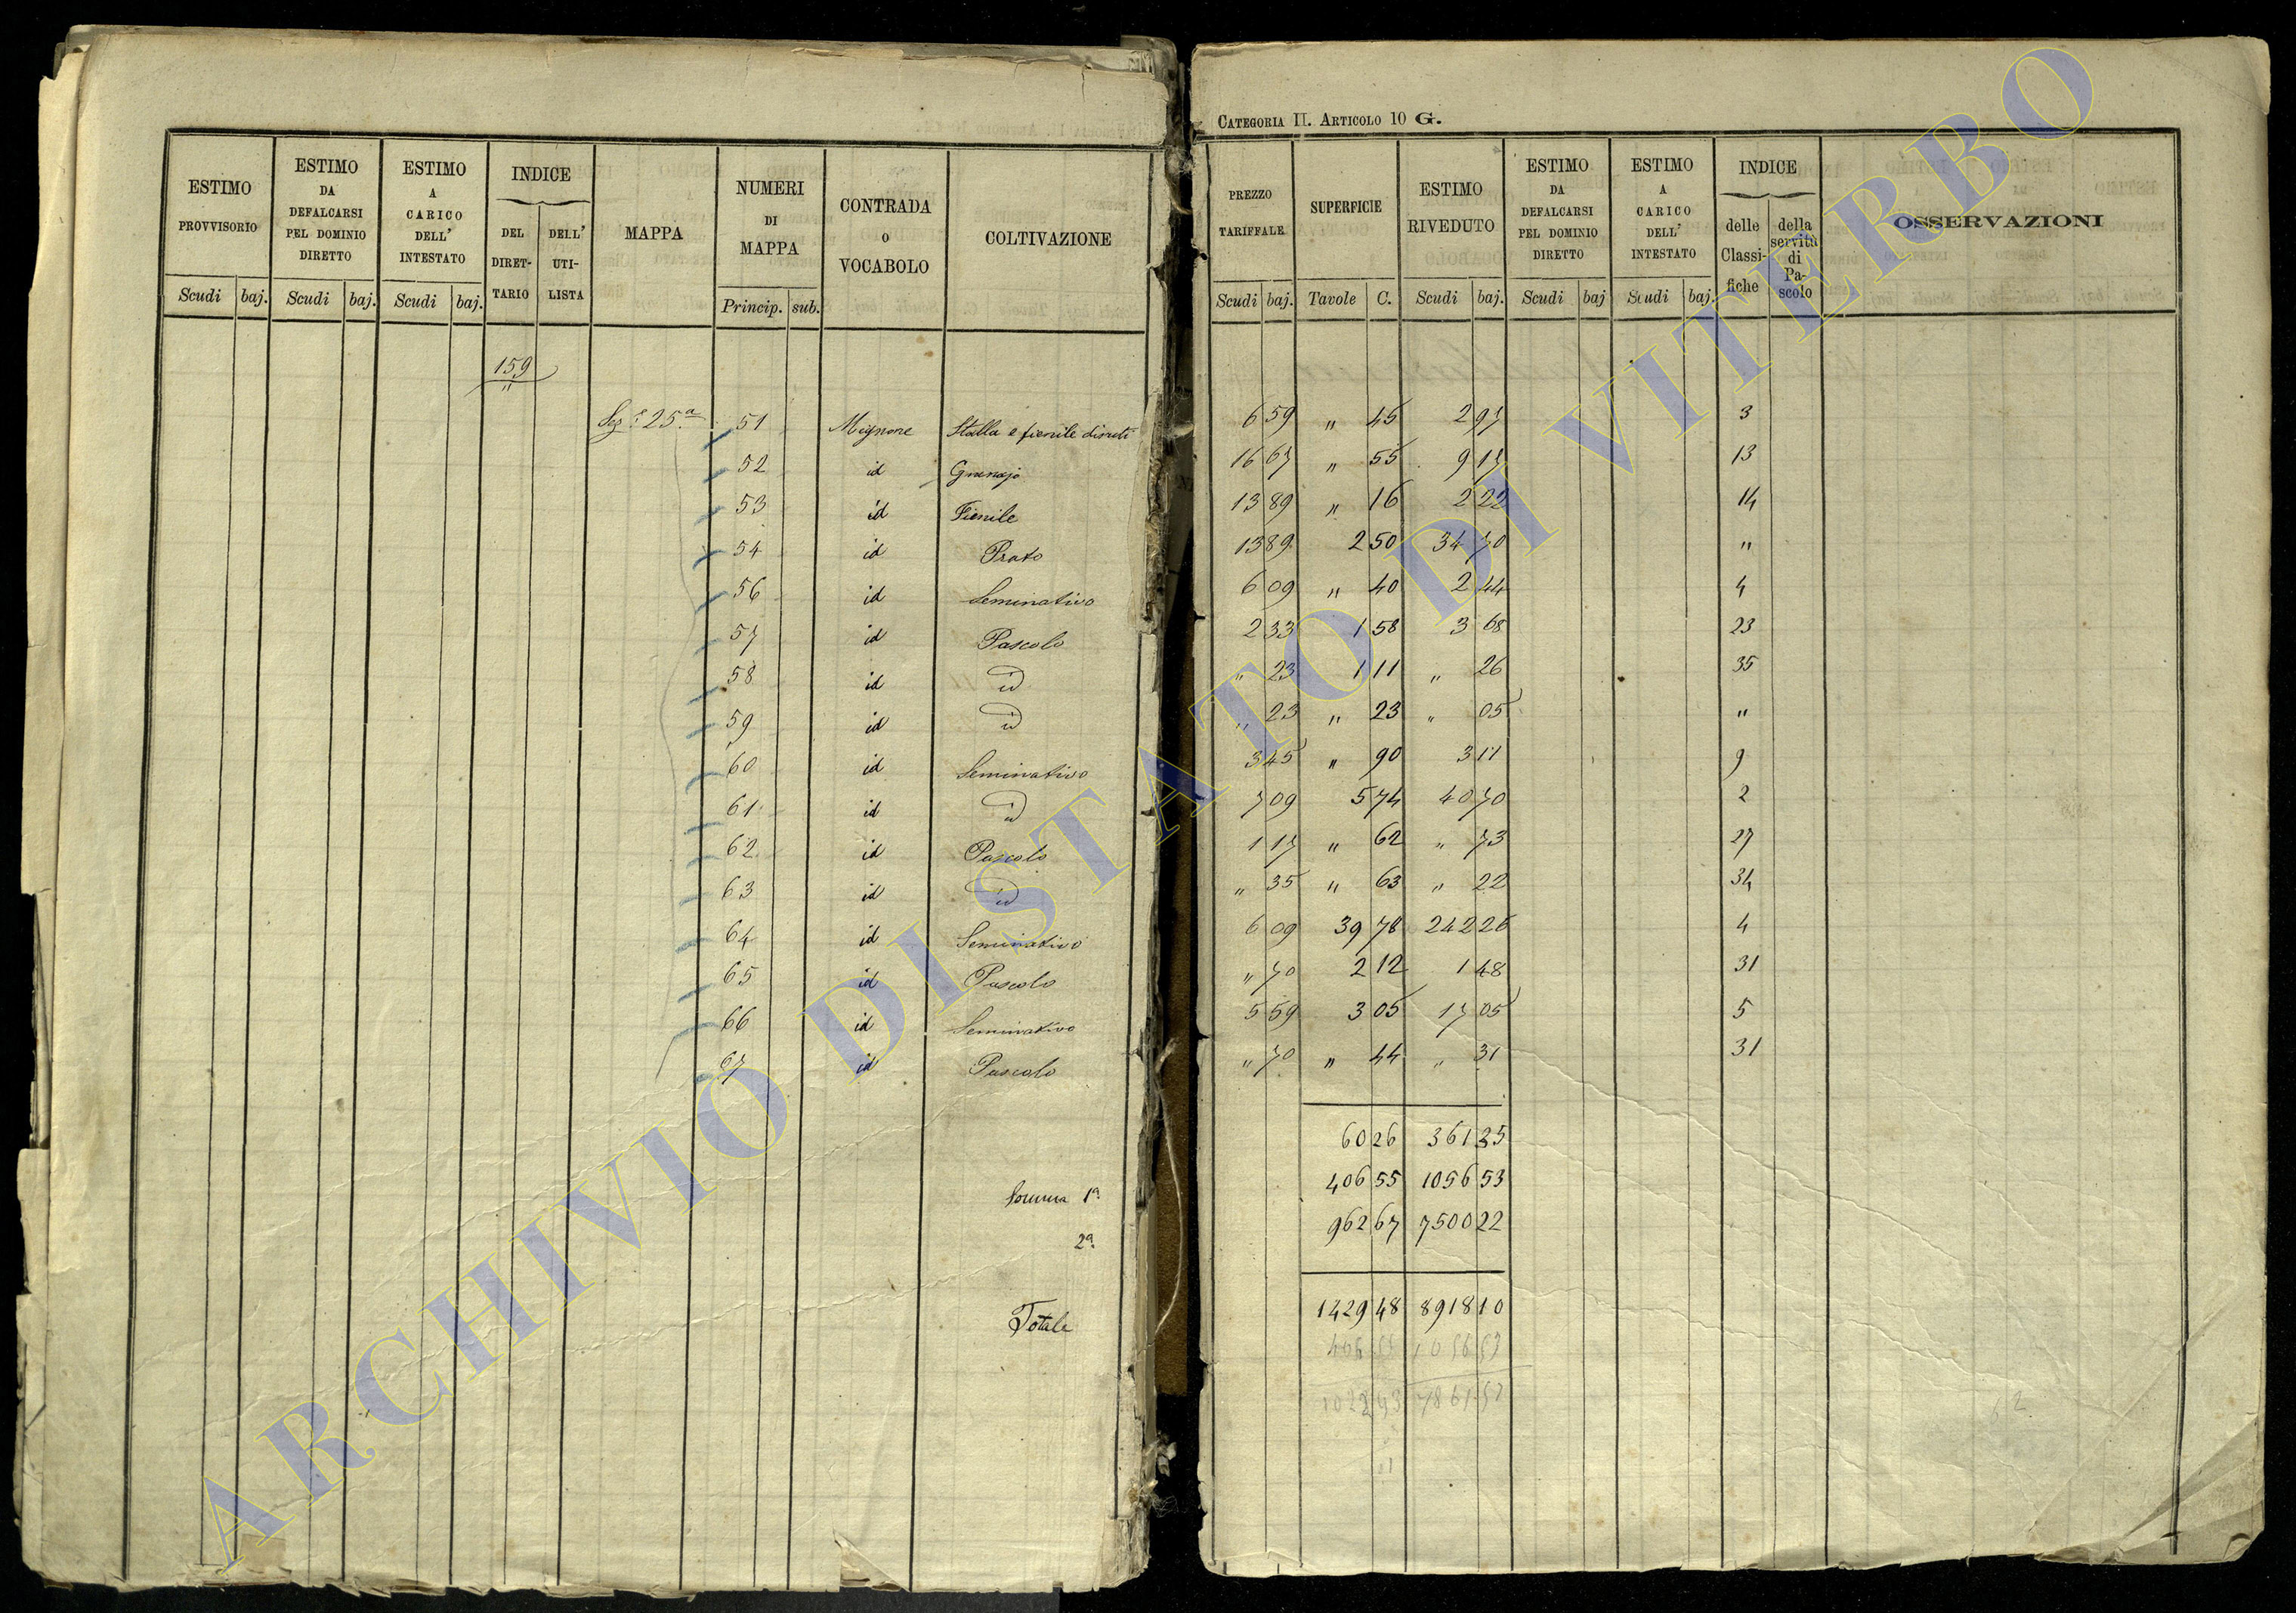 CATEGORIA II. ARTICOLO 10 G.
ESTIMO PROVVISORIO | ESTIMO DA DEFALCARSI PEL DOMINIO DIRETTO | ESTIMO A CARICO DELL' INTESTATO | INDICE DEL DIRETTARIO | DELL' UTILISTA | MAPPA | NUMERI DI MAPPA | CONTRADA O VOCABOLO | COLTIVAZIONE | PREZZO TARIFFALE | SUPERFICIE | ESTIMO RIVEDUTO | ESTIMO DA DEFALCARSI PEL DOMINIO DIRETTO | ESTIMO A CARICO DELL' INTESTATO | INDICE delle Classifiche | della servitù di Pascolo | OSSERVAZIONI
Scudi baj. | Scudi baj. | Scudi baj. | Princip. sub. | Scudi baj. | Tavole C. | Scudi baj. | Scudi baj | Scudi baj.
159
"
Sez.e 25.a 51 Mignone Stalla e fienile diruti 6 59 " 45 2 97 3
52 id Granajo 16 67 " 55 9 17 13
53 id Fienile 13 89 " 16 2 22 14
54 id Prato 13 89 2 50 34 70 "
56 id Seminativo 6 09 " 40 2 44 4
57 id Pascolo 2 33 1 58 3 68 23
58 id id " 23 1 11 " 26 35
59 id id " 23 " 23 " 05 "
60 id Seminativo 3 45 " 90 3 11 9
61 id id 7 09 5 74 40 70 2
62 id Pascolo 1 17 " 62 " 73 27
63 id id " 35 " 63 " 22 34
64 id Seminativo 6 09 39 78 242 26 4
65 id Pascolo " 70 2 12 1 48 31
66 id Seminativo 5 59 3 05 17 05 5
67 id Pascolo " 70 " 44 " 31 31
60 26 361 35
Somma 1a 406 55 1056 53
2a 962 67 7500 22
Totale 1429 48 8918 10
406 55 1056 53
1022 93 7861 57
62
ARCHIVIO DI STATO DI VITERBO